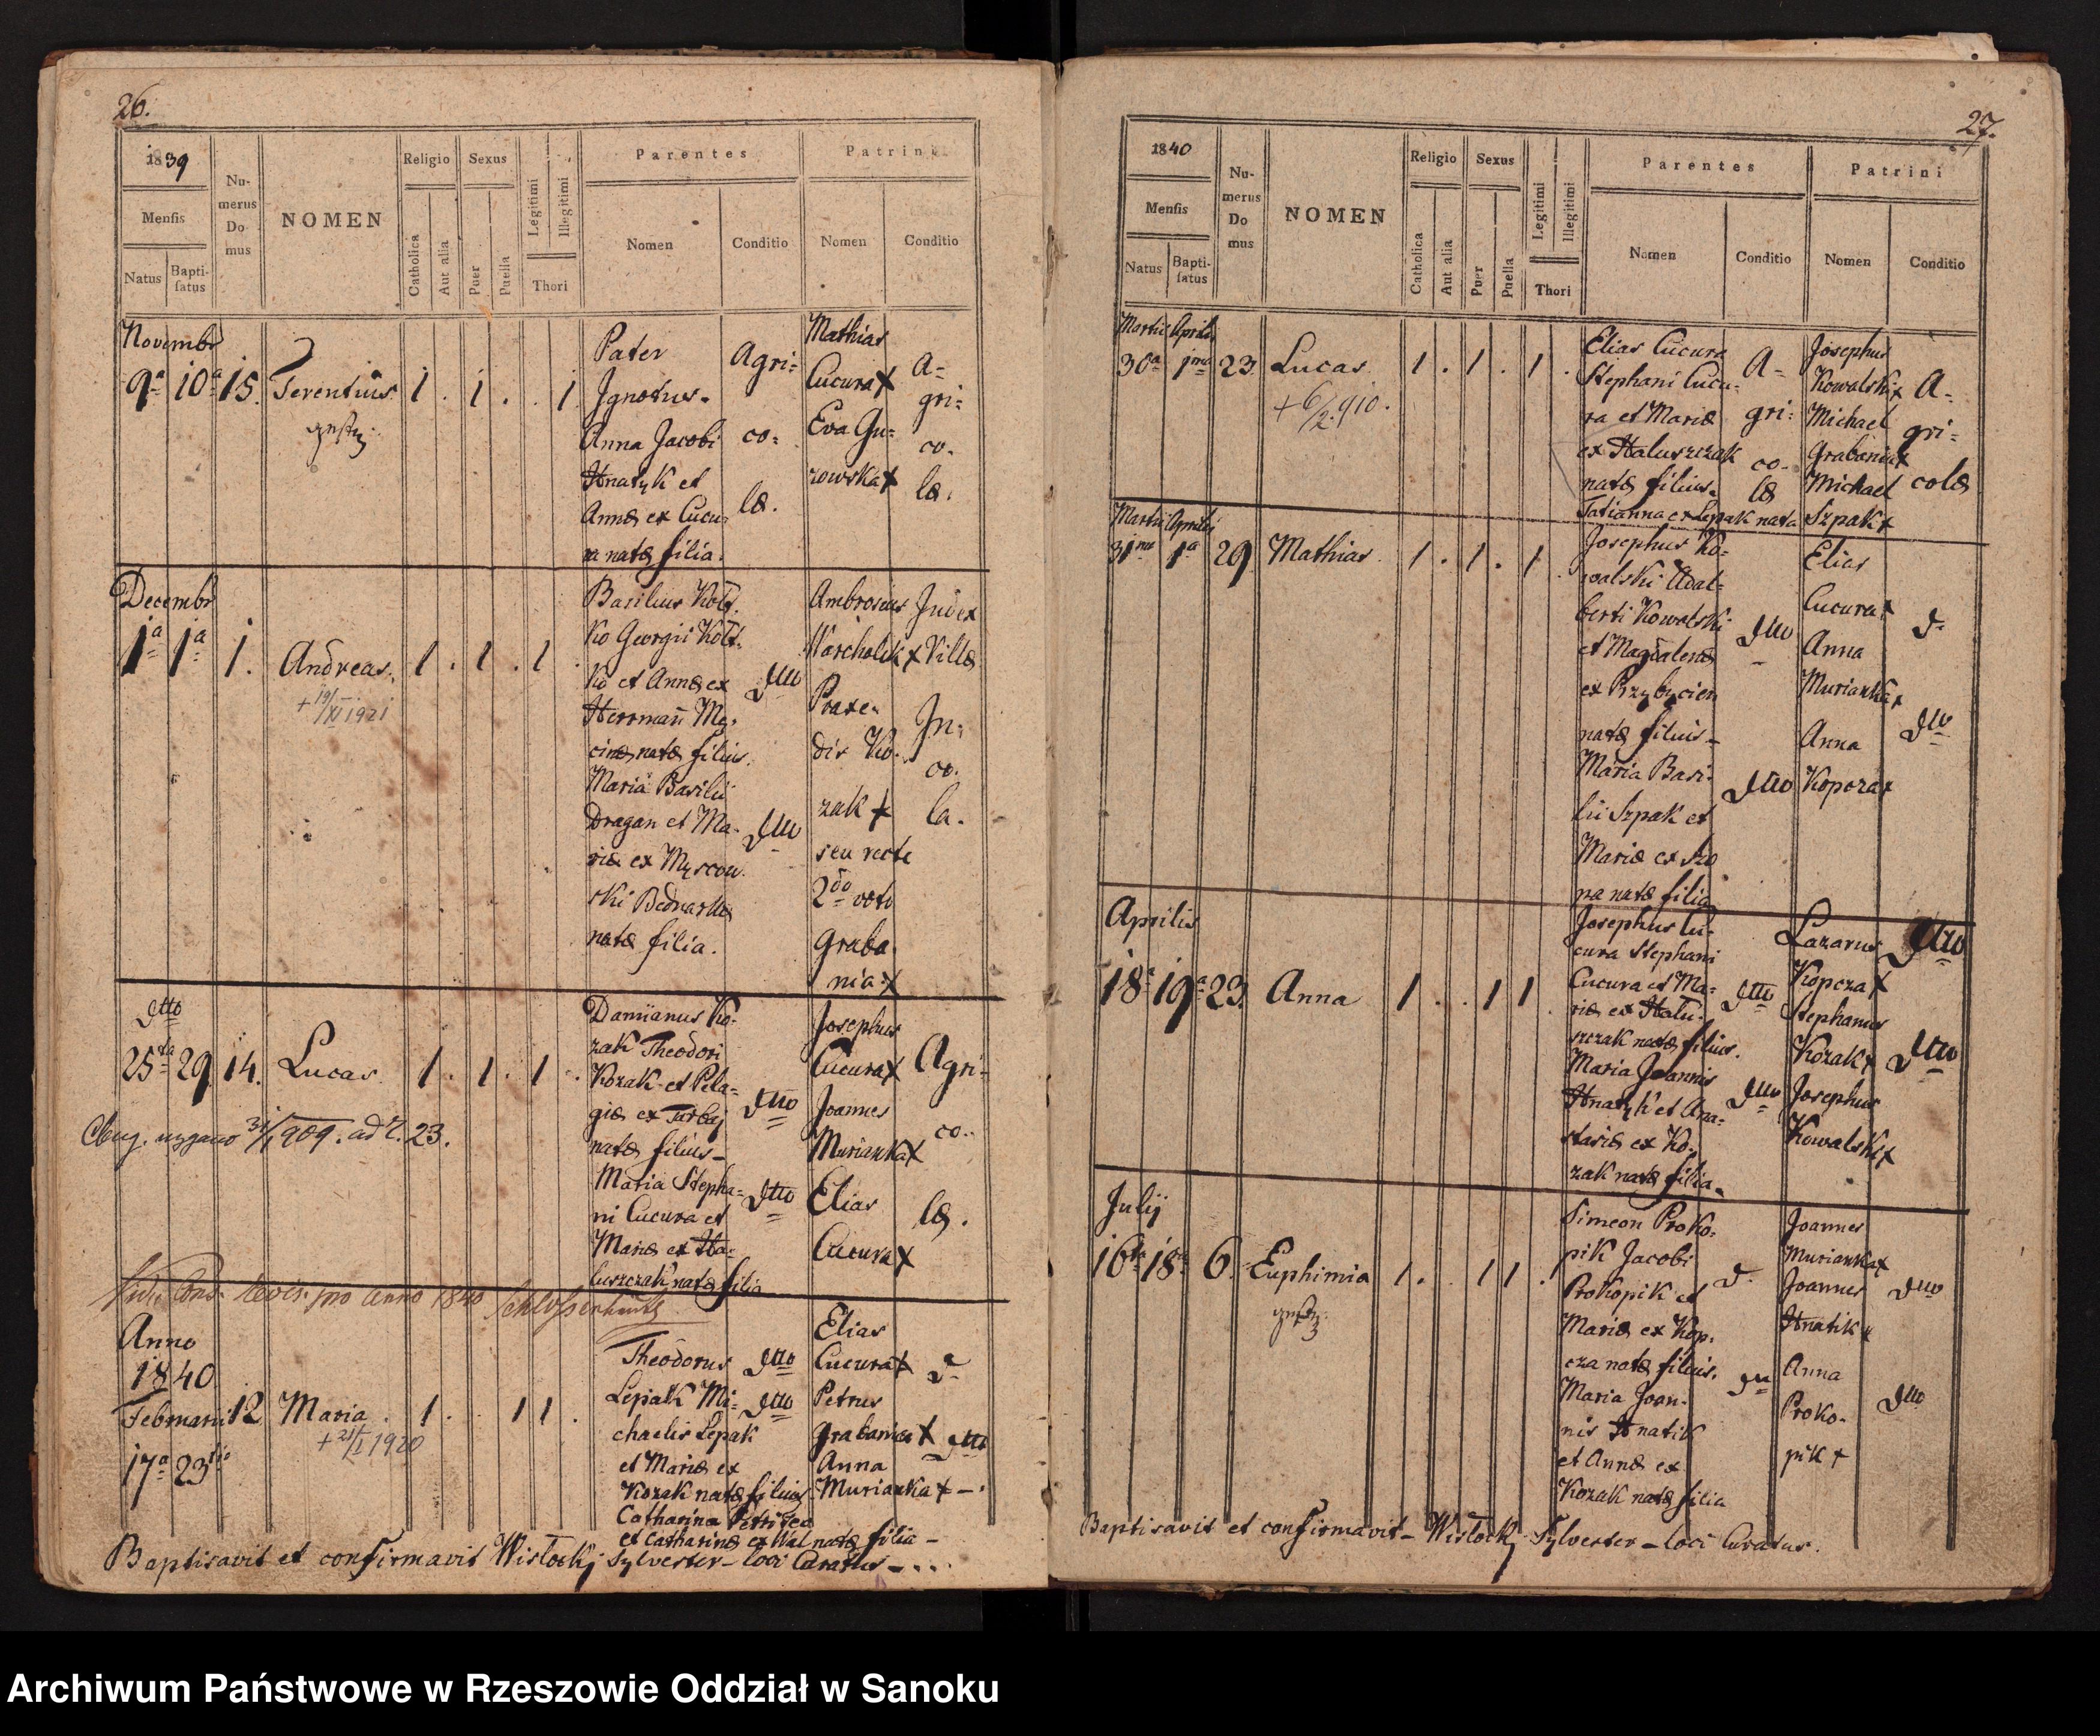 26.
1839
Mensis
Natus
Bapti-
satus
Nu-
merus
Do
mus
NOMEN
Religio
Catholica
Aut alia
Sexus
Puer
Puella
Legitimi
Illegitimi
Thori
Parentes
Nomen
Conditio
Patrini
Nomen
Conditio
Novembr
9a 10a 15. Terentius. 1 . 1 . . 1
Pater
Ignotus.
Anna Jacobi
Hnatyk et
Annæ ex Cucu-
ra natæ filia.
Agri-
co-
læ.
Mathias
Cucura x
Eva Gu-
zowska x
A-
gri-
co-
læ.
Decembr
1a 1a 1. Andreas. 1 . 1 . 1 .
+ 19/XI 1921
Basilius Kołt.
ko Georgii Kołt.
ko et Annæ ex
Herrman My-
cinæ natæ filius.
Maria Basilii
Dragan et Ma-
riæ ex Myscow.
ski Bednarska
natæ filia.
Dtto
Dtto
Ambrosius
Warcholik x
Praxe-
dis Ko-
zak x
seu recte
2do voto
Graba-
nia x
Judex
Villæ
In-
co-
la.
Dtto
25ta 29 14. Lucas. 1 . 1 . 1 .
31/1 909. ad L. 23.
Damianus Ko-
zak Theodori
Kozak et Pela-
giæ ex Turbaj
natæ filius
Maria Stepha-
ni Cucura et
Mariæ ex Ha-
luszczak natæ filia
Dtto
Dtto
Josephus
Cucura x
Joannes
Murianka x
Elias
Cucura x
Agri-
co-
læ.
pro Anno 1840
Anno
1840
Februarii 12 Maria . 1 . 1 1 .
17a 23tia
+ 21/I 1920
Theodorus
Lepiak Mi-
chaelis Lepak
et Mariæ ex
Kozak natæ filius
Catharina Petri
et Catharinæ ex Wal natæ filia
Dtto
Dtto
Elias
Cucura x
Petrus
Grabania x
Anna
Murianka x
Dtto
Baptisavit et confirmavit Wisłocky Sylvester - loci Curatus - ...
27.
1840
Mensis
Natus
Bapti-
satus
Nu-
merus
Do
mus
NOMEN
Religio
Catholica
Aut alia
Sexus
Puer
Puella
Legitimi
Illegitimi
Thori
Parentes
Nomen
Conditio
Patrini
Nomen
Conditio
Martii Aprilis
30a 1ma 23. Lucas 1 . 1 . 1 .
+ 6/2. 910.
Elias Cucura
Stephani Cucu-
ra et Mariæ
ex Haluszczak
natæ filius.
Tatianna ex Lepak nata
A-
gri-
co-
læ
Josephus
Kowalski x
Michael
Grabania x
Michael
Szpak x
A-
gri-
colæ
Martii Aprilis
31ma 1a 29 Mathias. 1 . 1 . 1 .
Josephus Ko-
walski Adal-
berti Kowalski
et Magdalenæ
ex Przybycien
natæ filius
Maria Basi-
lii Szpak et
Mariæ ex
na natæ filia
Dtto
Dtto
Elias
Cucura x
Anna
Murianka x
Anna
Kopcza x
Dtto
Aprilis
18a 19a 23. Anna 1 . . 1 1
Josephus Cu-
cura Stephani
Cucura et Ma-
riæ ex Halu-
szczak natæ filius.
Maria Joannis
Hnatyk et Ana-
stasiæ ex Ko-
zak natæ filia.
Dtto
Dtto
Lazarus
Kopcza x
Stephanus
Kozak x
Josephus
Kowalski x
Dtto
Dtto
Julij
16ta 18a 6. Euphimia 1 . . 1 1 .
Simeon Proko-
pik Jacobi
Prokopik et
Mariæ ex Kop-
cza natæ filius.
Maria Joan-
nis Hnatik
et Annæ ex
Kozak natæ filia
Joannes
Murianka x
Joannes
Hnatik x
Anna
Proko-
pik x
Dtto
Dtto
Baptisavit et confirmavit - Wisłocky Sylvester - loci Curatus.
Archiwum Państwowe w Rzeszowie Oddział w Sanoku